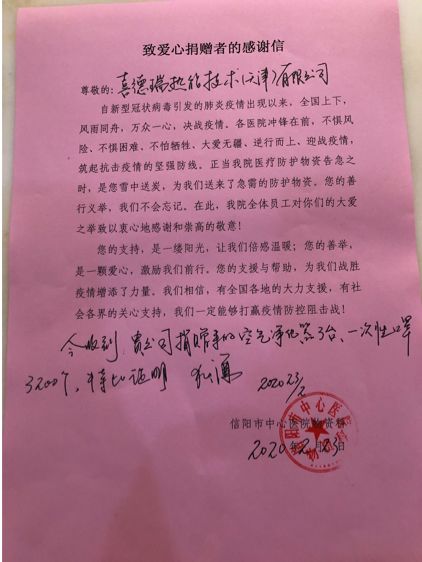 致爱心捐赠者的感谢信
尊敬的：喜德瑞热能技术(天津)有限公司
自新型冠状病毒引发的肺炎疫情出现以来，全国上下，
风雨同舟，万众一心，决战疫情。各医院冲锋在前，不惧风
险、不惧困难、不怕牺牲、大爱无疆、逆行而上、迎战疫情，
筑起抗击疫情的坚强防线。正当我院医疗防护物资告急之
时，是您雪中送炭，为我们送来了急需的防护物资。您的善
行义举，我们不会忘记。在此，我院全体员工对你们的大爱
之举致以衷心地感谢和崇高的敬意！
您的支持，是一缕阳光，让我们倍感温暖；您的善举，
是一颗爱心，激励我们前行。您的支援与帮助，为我们战胜
疫情增添了力量。我们相信，有全国各地的大力支援，有社
会各界的关心支持，我们一定能够打赢疫情防控阻击战！
今收到：贵公司捐赠来的空气净化器3台、一次性口罩
3200个，特此证明
信阳市中心医院物资科
2020年2月23日